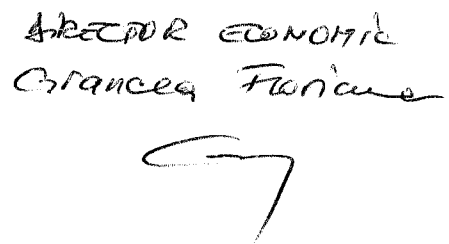 DIRECTOR ECONOMIC
Brancea Floriana